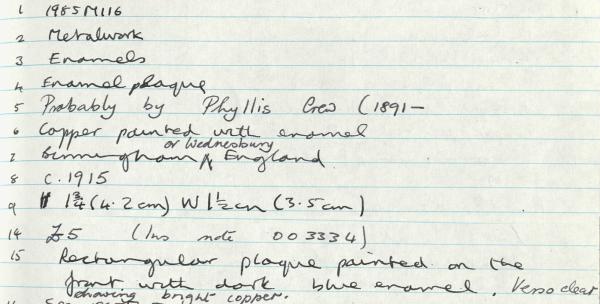 1 1985M116
2 Metalwork
3 Enamels
4 Enamel plaque
5 Probably by Phyllis Crew (1891-
6 Copper painted with enamel
or Wednesbury
7 Birmingham ⁁ England
8 c. 1915
9 H 1¾ (4.2cm) W 1½cm (3.5cm)
14 £5 (Ins note 003334)
15 Rectangular plaque painted on the
front with dark blue enamel. Verso clear
showing bright copper.